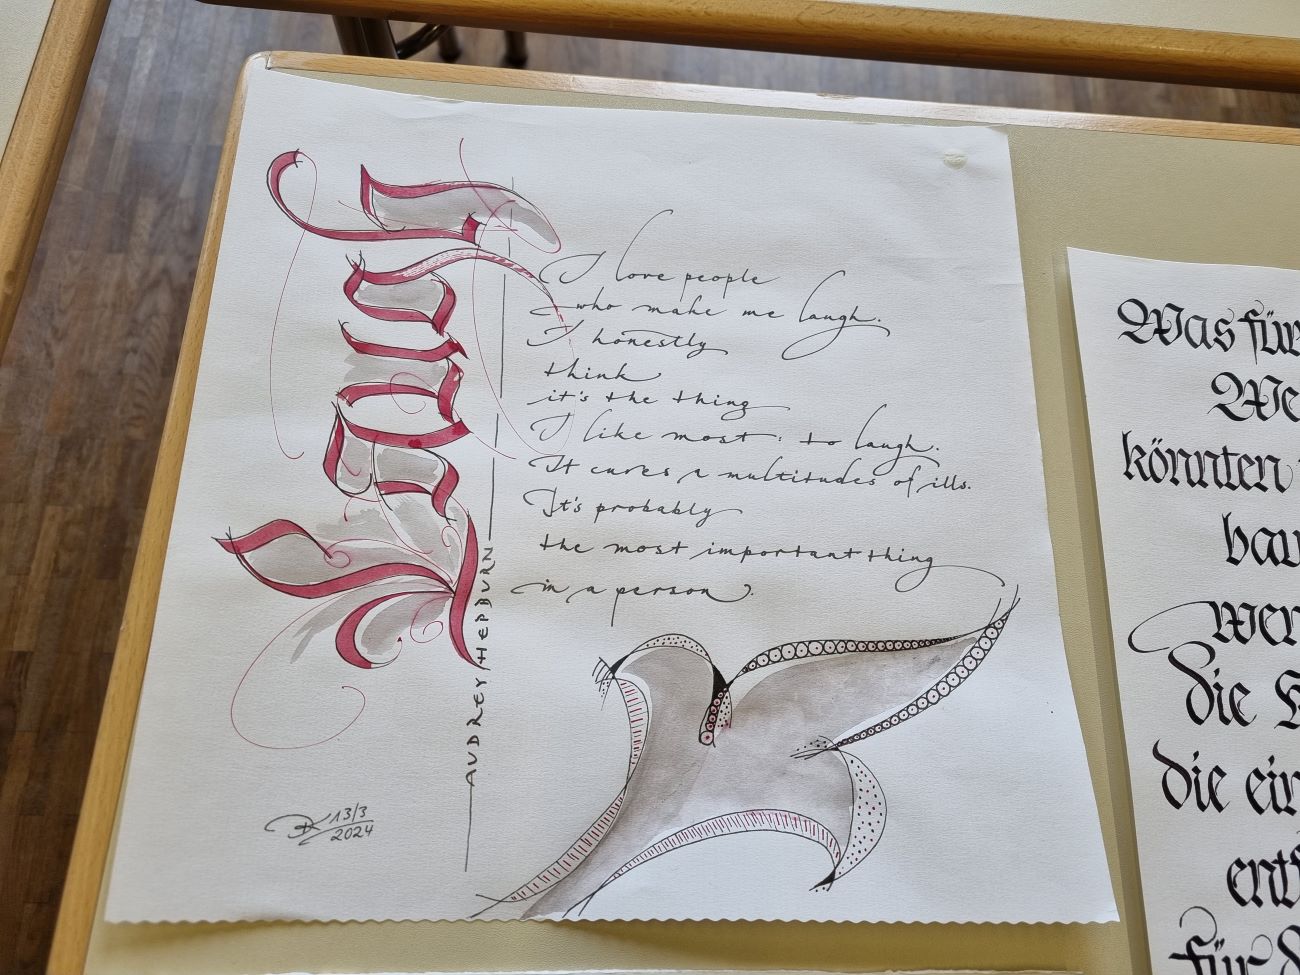 I love people
who make me laugh.
I honestly
think
it's the thing
I like most: to laugh.
It cures a multitudes of ills.
It's probably
the most important thing
in a person.
AUDREY HEPBURN
13/3
2024
Was für
We
könnten
bau
wer
die
die ein
entf
für